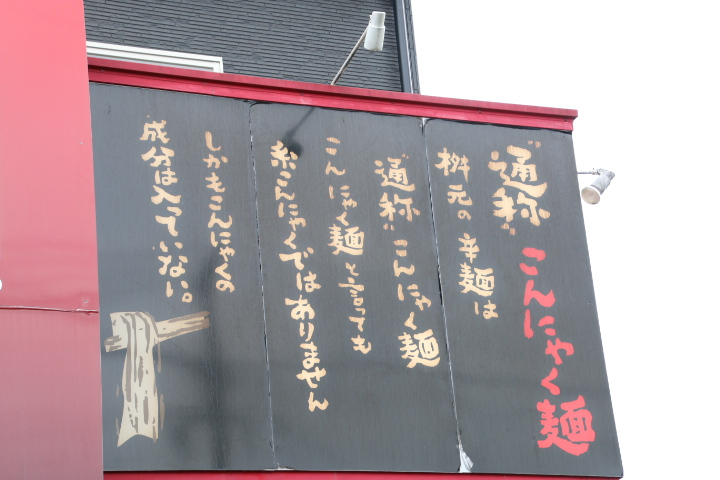 "通称" こんにゃく麺
桝元の辛麺は
"通称" こんにゃく麺
こんにゃく麺と言っても
糸こんにゃくではありません
しかもこんにゃくの
成分は入っていない。